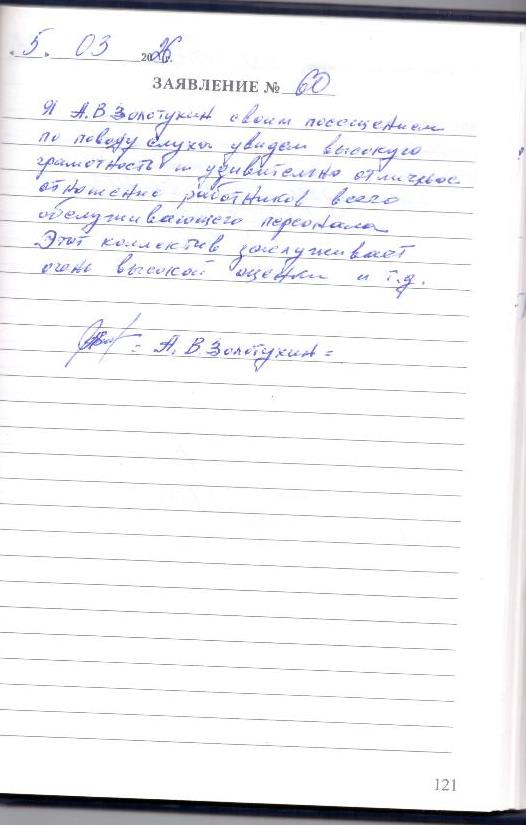 « 5 » 03 2026г.
ЗАЯВЛЕНИЕ № 60
Я А.В Золотухин своим посещением
по поводу слуха увидел высокую
грамотность и удивительно отличное
отношение работников всего
обслуживающего персонала
Этот коллектив заслуживает
очень высокой оценки и т.д.
= А. В Золотухин =
121